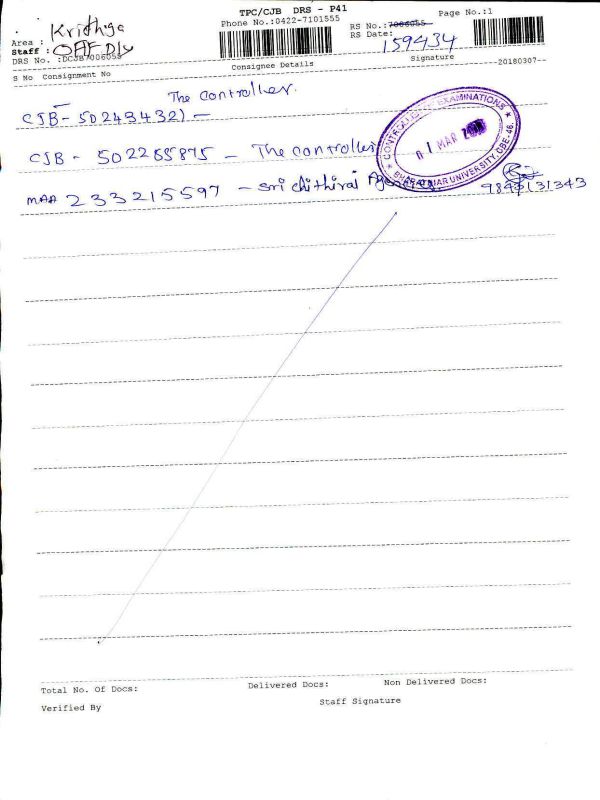 TPC/CJB DRS - P41
Phone No.:0422-7101555
Page No.:1
RS No.:7006055
RS Date:
159434
Area :
Staff : OFF Dly
DRS No. :DCJB7006055
Consignee Details
Signature
20180307--
S No Consignment No
The Controller.
CJB - 502434321 -
CJB - 502265875 - The controller
MAA 233215597 - Sri chithirai Agencies
CONTROLLER OF EXAMINATIONS
01 MAR
BHARATHIAR UNIVERSITY, CBE-46.
Total No. Of Docs:
Delivered Docs:
Non Delivered Docs:
Verified By
Staff Signature